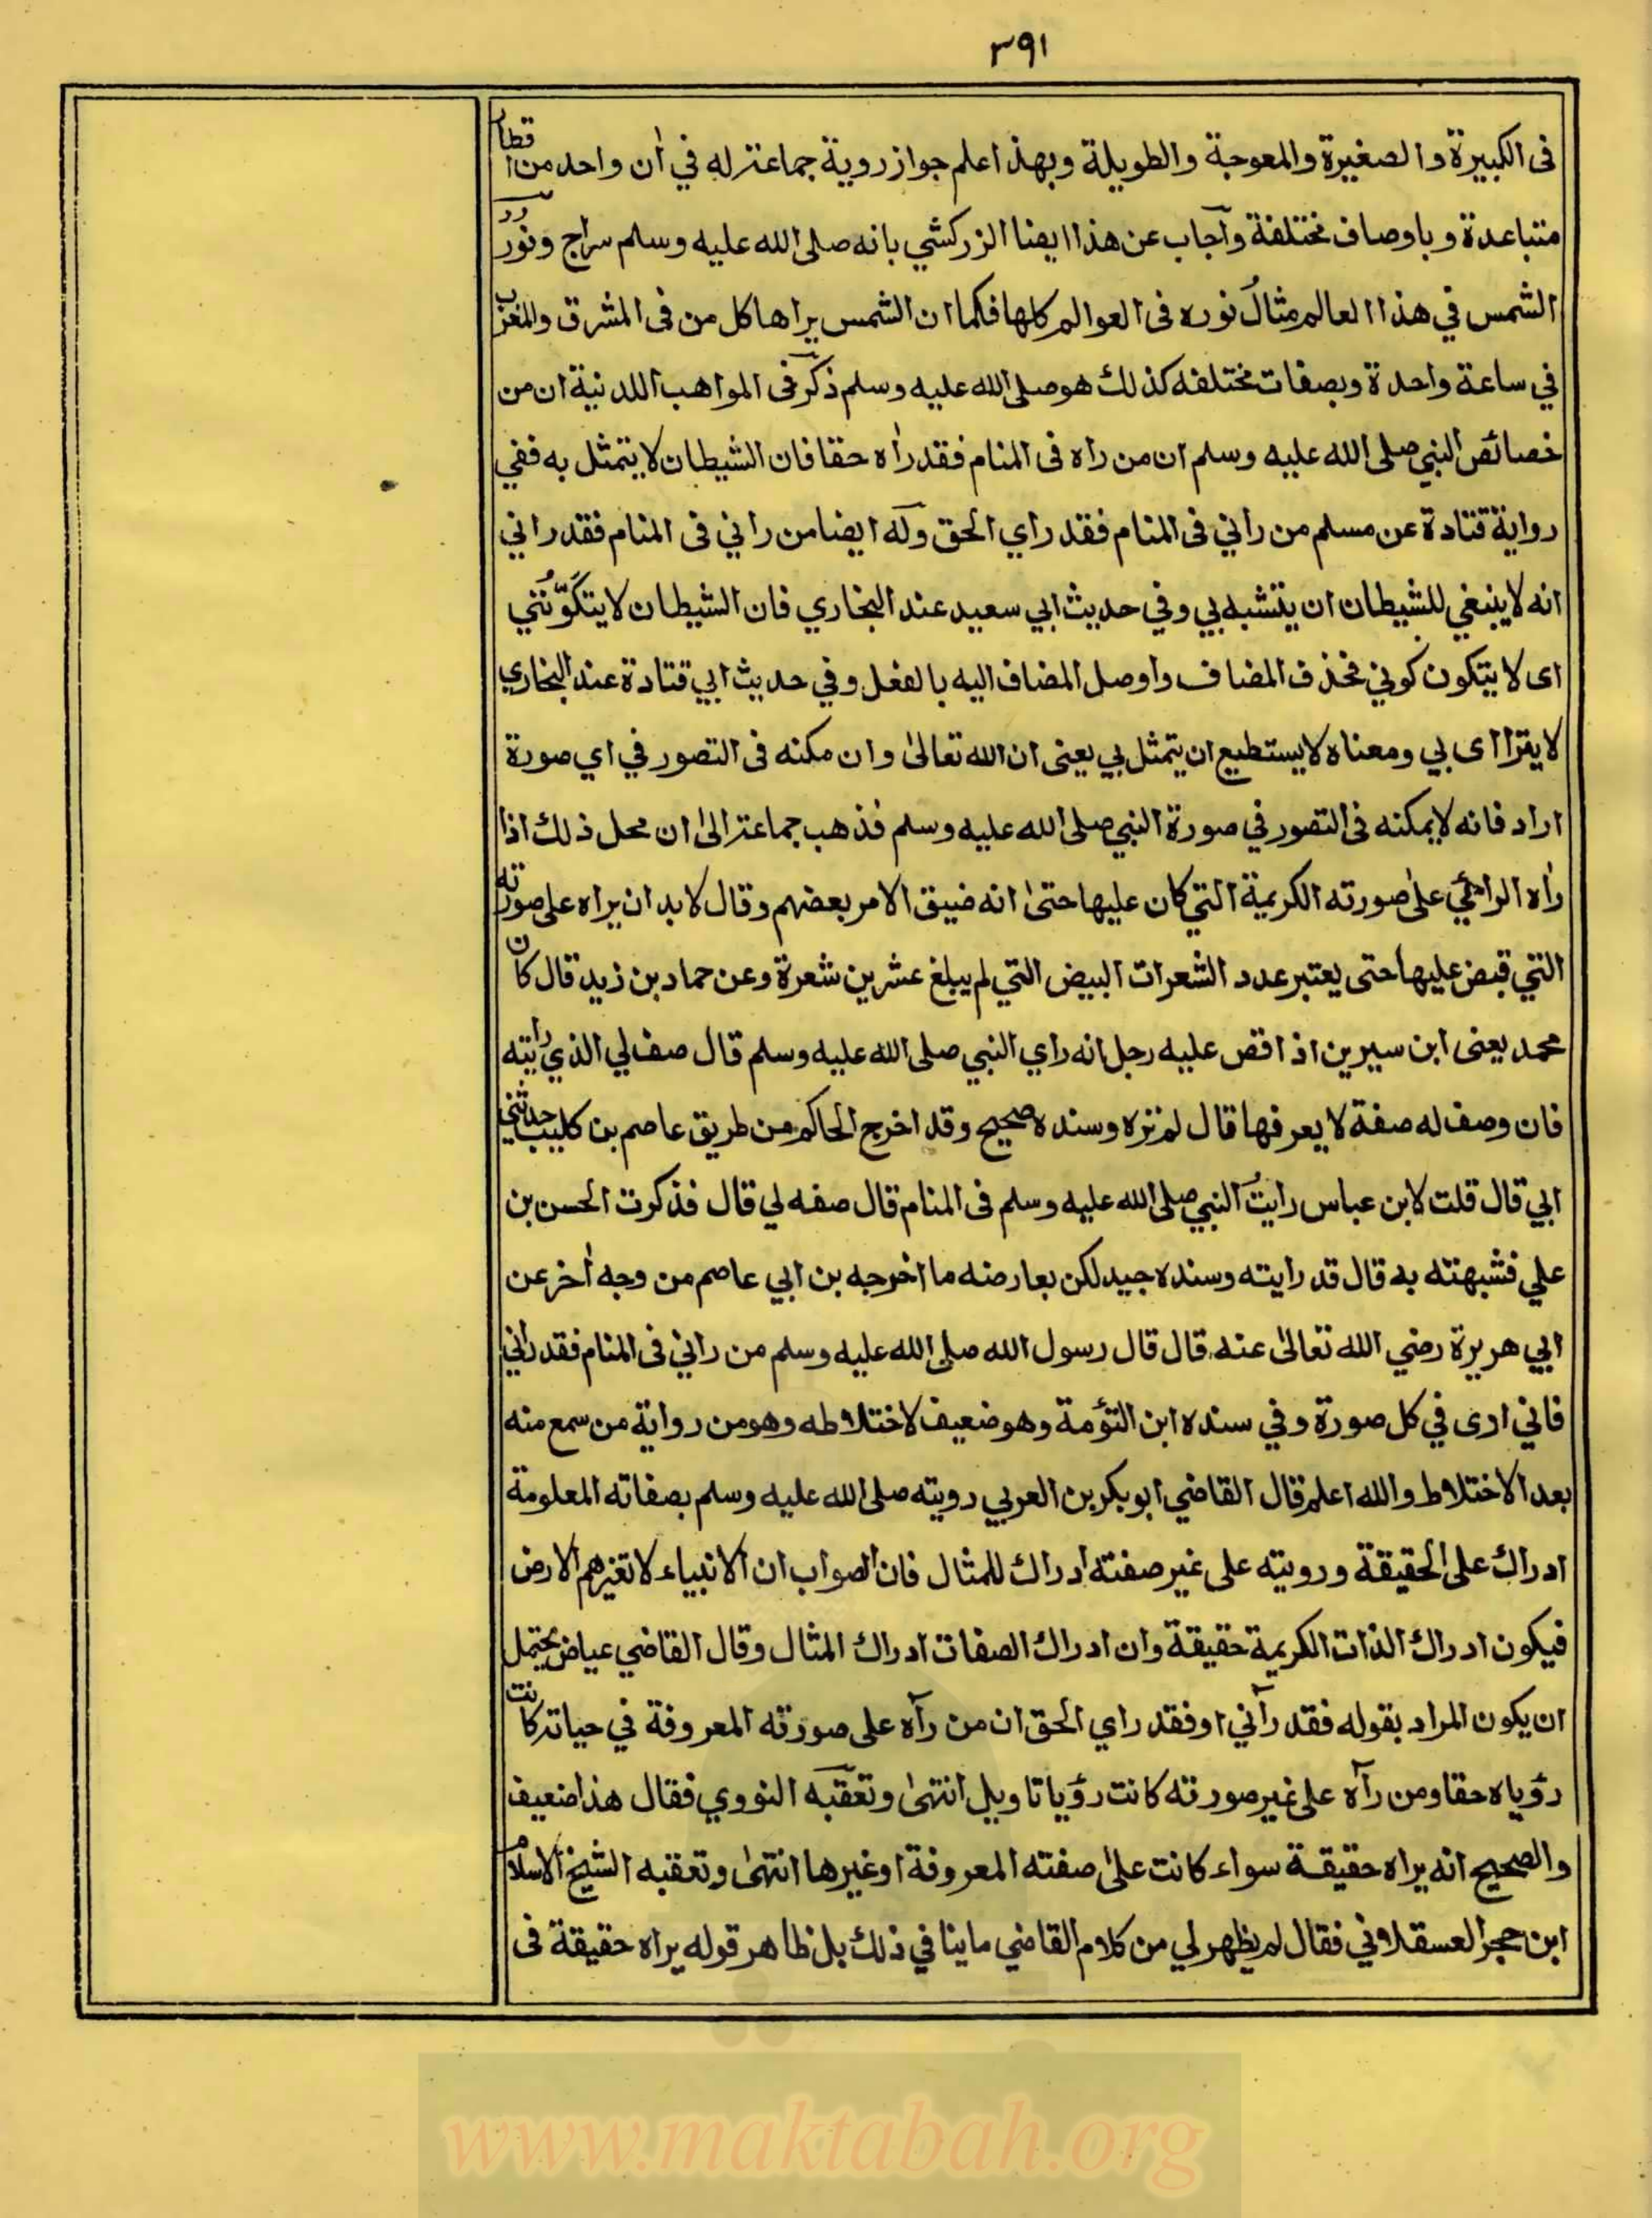 ٣٩١
فى الكبيرة والصغيرة والمعوجة والطويلة وبهذا علم جواز روية جماعة له في اٰن واحد من اقطار
متباعدة وباوصاف مختلفة وآجاب عن هذا ايضا الزركشي بانه صلى الله عليه وسلم سراج ونور
الشمس في هذا العالم مثال نوره فى العوالم كلها فكما ان الشمس يراها كل من فى المشرق والمغرب
في ساعة واحدة وبصفات مختلفه كذلك هو صلى الله عليه وسلم ذكر فى المواهب اللدنية ان من
خصائص النبي صلى الله عليه وسلم ان من راه فى المنام فقد راٰه حقا فان الشيطان لا يتمثل به ففي
رواية قتادة عن مسلم من راني فى المنام فقد راي الحق وله ايضا من راني فى المنام فقد راني
انه لا ينبغي للشيطان ان يتشبه بي وفي حديث ابي سعيد عند البخاري فان الشيطان لا يتكوّنُني
اى لا يتكون كوني فحذف المضاف واوصل المضاف اليه بالفعل وفي حديث ابي قتادة عند البخاري
لا يترااى بي ومعناه لا يستطيع ان يتمثل بي يعنى ان الله تعالىٰ وان مكنه فى التصور في اي صورة
اراد فانه لا يمكنه فى التصور في صورة النبي صلى الله عليه وسلم فذهب جماعة الىٰ ان محل ذلك اذا
راٰه الرائي علىٰ صورته الكريمة التي كان عليها حتىٰ انه ضيق الامر بعضهم وقال لا بد ان يراه على صورته
التي قبض عليها حتى يعتبر عدد الشعرات البيض التي لم يبلغ عشرين شعرة وعن حماد بن زيد قال كان
محمد يعنى ابن سيرين اذا قص عليه رجل انه راي النبي صلى الله عليه وسلم قال صف لي الذي رايته
فان وصف له صفة لا يعرفها قال لم تره وسنده صحيح وقد اخرج الحاكم من طريق عاصم بن كليب حدثني
ابي قال قلت لابن عباس رايتُ النبي صلى الله عليه وسلم فى المنام قال صفه لي قال فذكرت الحسن بن
علي فشبهته به قال قد رايته وسنده جيد لكن يعارضه ما اخرجه بن ابي عاصم من وجه اٰخر عن
ابي هريرة رضي الله تعالىٰ عنه قال قال رسول الله صلى الله عليه وسلم من راني فى المنام فقد راني
فاني ارى في كل صورة وفي سنده ابن التؤمة وهو ضعيف لاختلاطه وهو من رواية من سمع منه
بعد الاختلاط والله اعلم قال القاضي ابو بكر بن العربي رويته صلى الله عليه وسلم بصفاته المعلومة
ادراك على الحقيقة ورويته على غير صفته ادراك للمثال فان الصواب ان الانبياء لا تغيرهم الارض
فيكون ادراك الذات الكريمة حقيقة وان ادراك الصفات ادراك المثال وقال القاضي عياض يحتمل
ان يكون المراد بقوله فقد رآني او فقد راي الحق ان من رآه على صورته المعروفة في حياته كانت
رؤياه حقا ومن رآه على غير صورته كانت رؤيا تاويل انتهىٰ وتعقبه النووي فقال هذا ضعيف
والصحيح انه يراه حقيقة سواء كانت علىٰ صفته المعروفة او غيرها انتهىٰ وتعقبه الشيخ الاسلام
ابن حجر العسقلاني فقال لم يظهر لي من كلام القاضي ما ينافي ذلك بل ظاهر قوله يراه حقيقة فى
www.maktabah.org